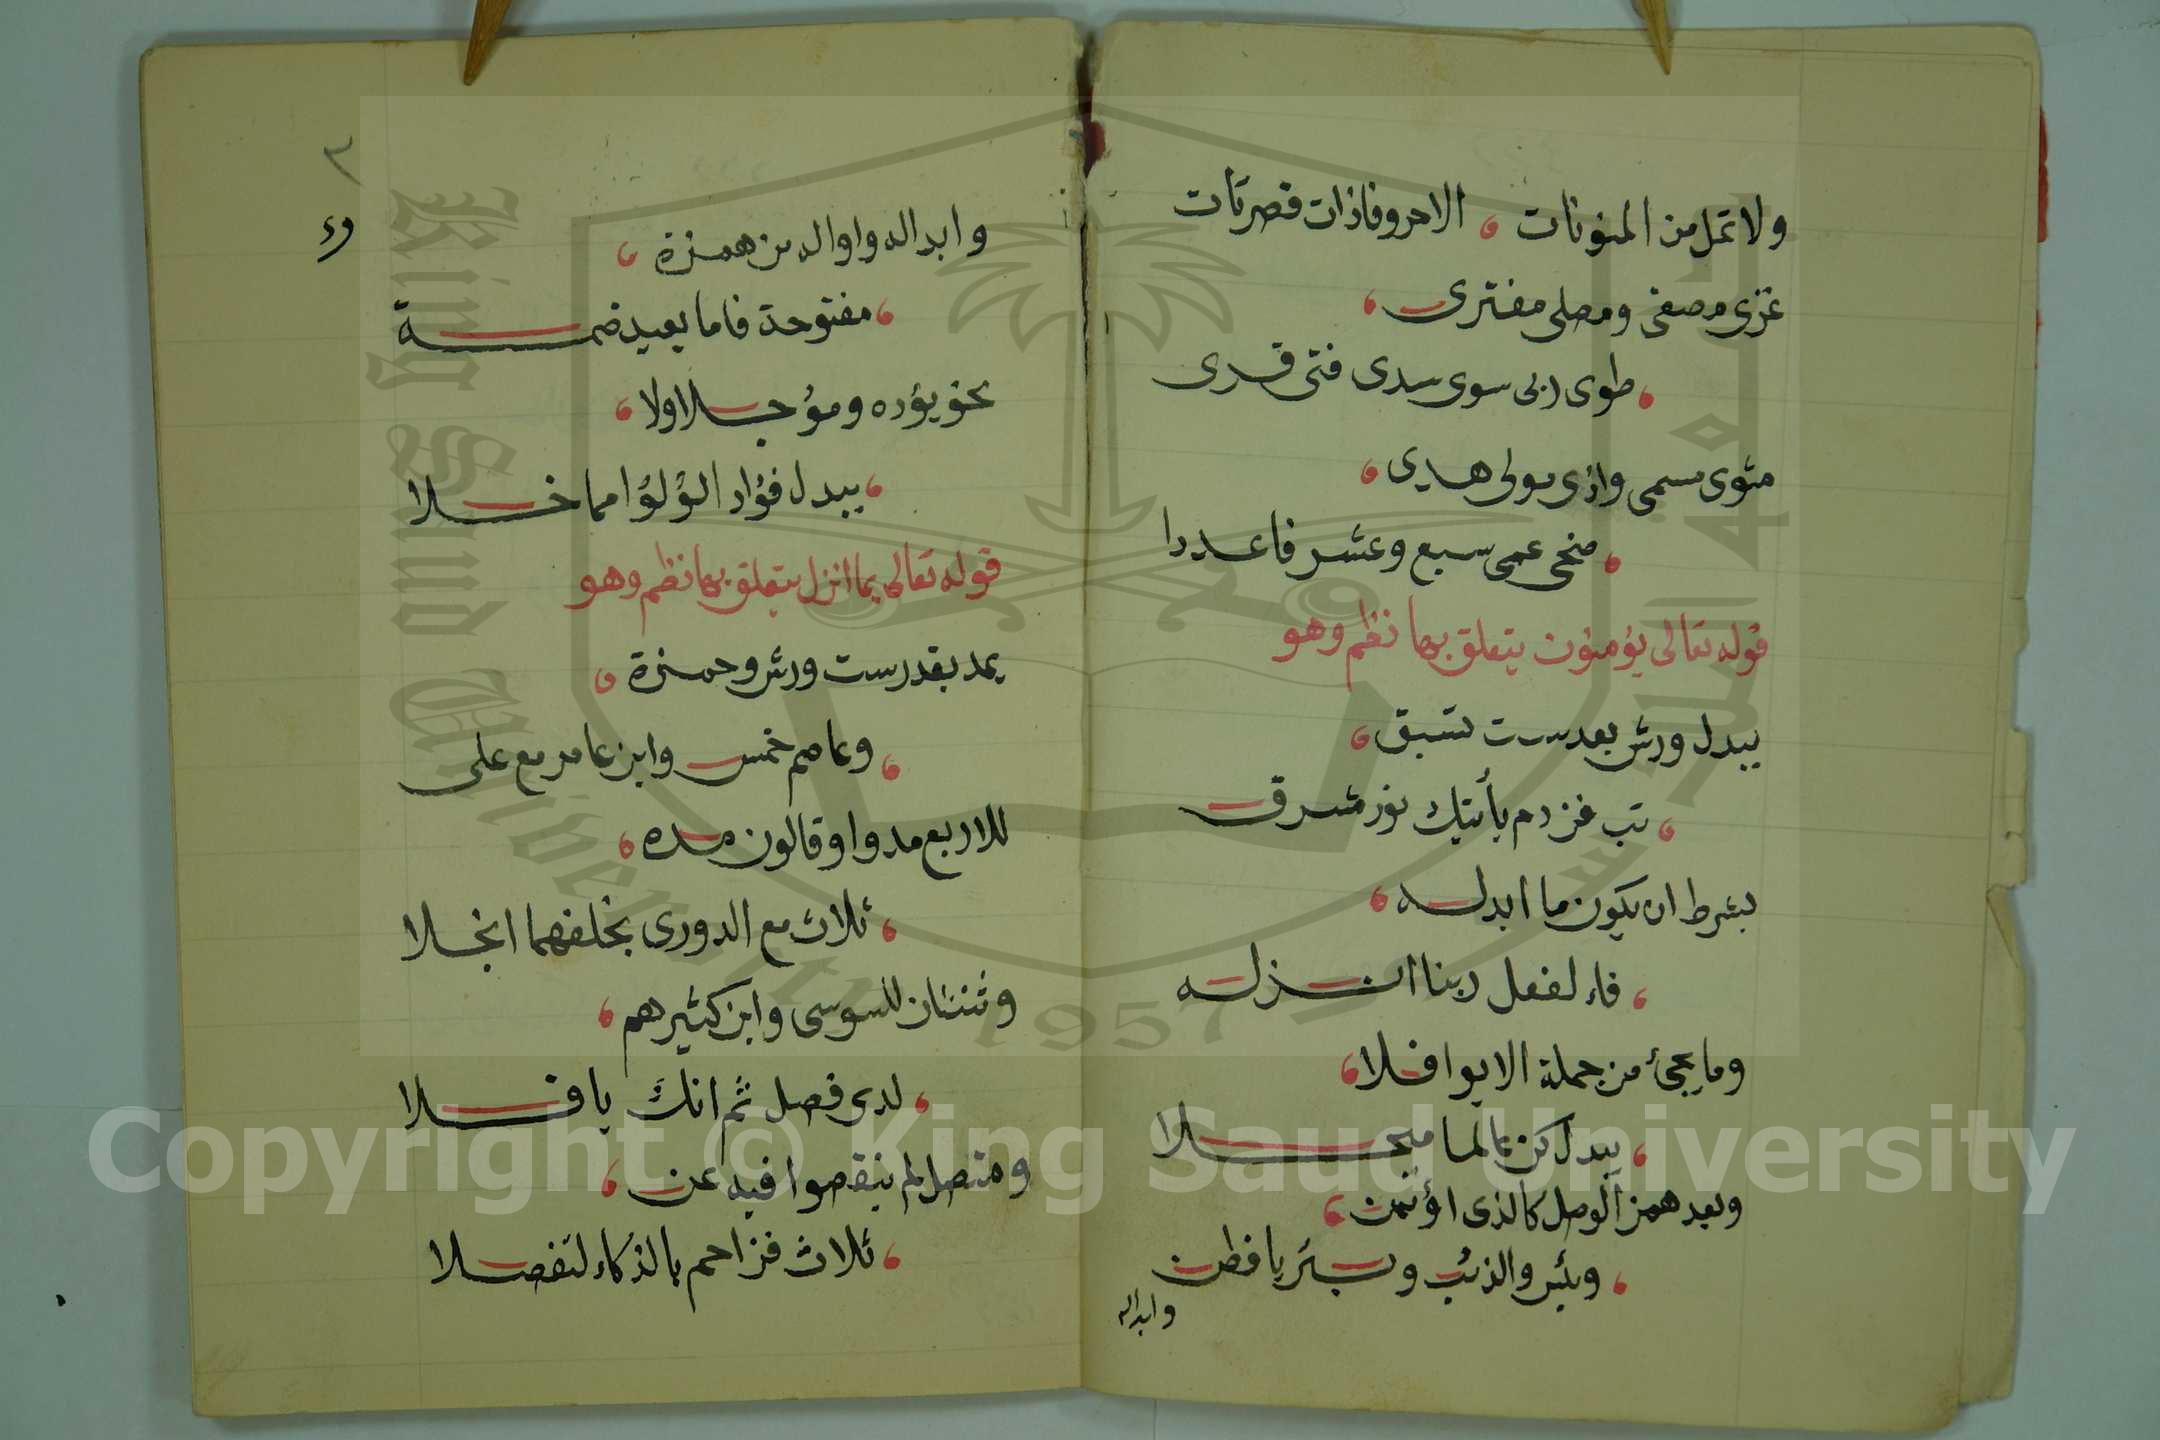 ولا تمل من المنونات ، الا حروفا ذات قصر تات
غزى مصفى ومصلى مفترى ،
، طوى ربى سوى سدى فتى قرى
مثوى مسمى واذى مولى هدى ،
، ضحى عمى سبع وعشر فاعددا
قوله تعالى يؤمنون يتعلق بها نظم وهو
يبدل ورش بعد ست تسبق ،
، تب فز دم يأتيك نور مشرق
بشرط ان يكون ما ابدله ،
، فاء لفعل ربنا انزله
وما يجئ من جملة الايوا فلا ،
، يبدل كن عالما مبجلا
وبعد همز الوصل كالذى اؤتمن ،
، وبئس والذئب وبئر يا فطن
وابداله
٣
وء
وابداله واوا لدى همزة ،
، مفتوحة فاما بعيد ضمة
نحو يؤده ومؤجلا ولا ،
، يبدل فؤاد الؤلؤا مما خلا
قوله تعالى بما انزل يتعلق بها نظم وهو
يمد بقدر ست ورش وحمزة ،
، وعاصم خمس وابن عامر مع على
للاربع مدوا وقالون مده ،
، ثلاث مع الدورى بخلفهما انجلا
وثنتان للسوسى وابن كثيرهم ،
، لدى فصل ثم انك يا فلا
ومتصل لم ينقصوا فيه عن ،
، ثلاث فزاحم بالذكاء لتفضلا
King Saud University
1957
Copyright © King Saud University